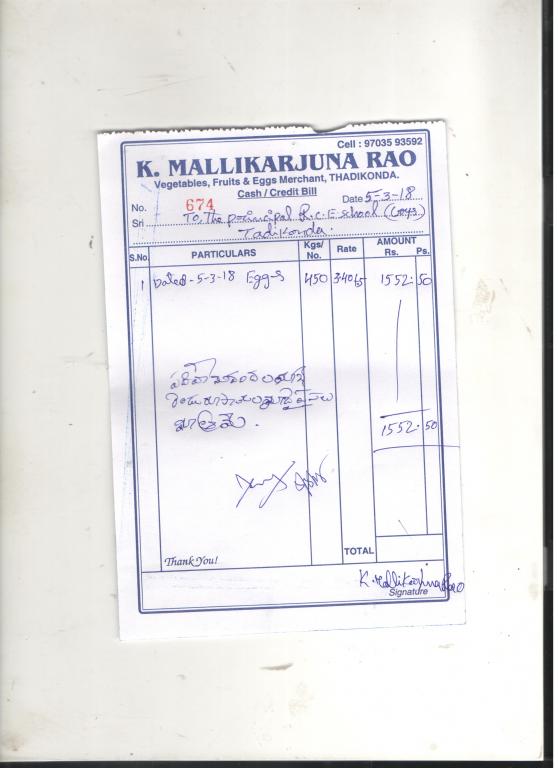 Cell : 97035 93592
K. MALLIKARJUNA RAO
Vegetables, Fruits & Eggs Merchant, THADIKONDA.
Cash / Credit Bill
No. 674 Date 5-3-18
Sri To, The principal R.C.E school (Boys)
Tadikonda.
S.No. PARTICULARS Kgs/ No. Rate AMOUNT Rs. Ps.
1 Dated-5-3-18 Eggs 450 1552. 50
1552. 50
Thank You!
TOTAL
K. Mallikarjuna Rao
Signature